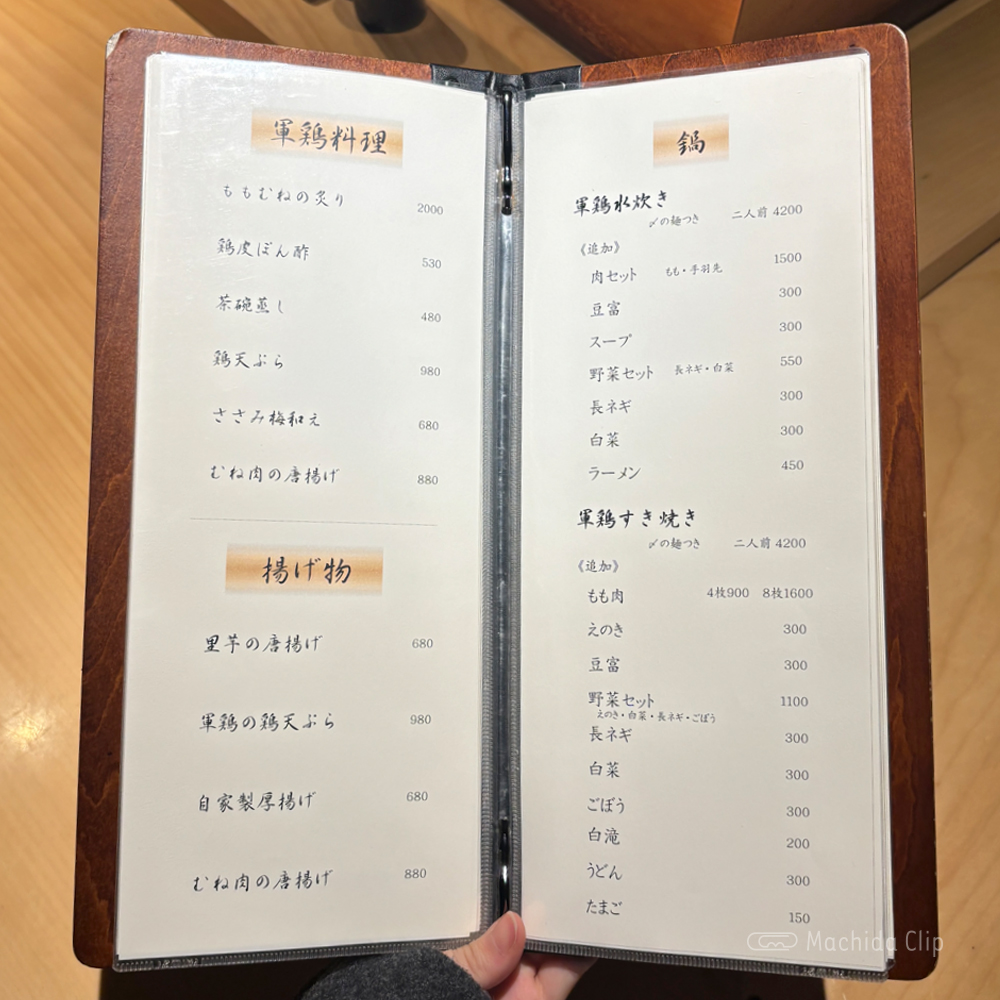 軍鶏料理
ももむねの炙り 2000
鶏皮ぽん酢 530
茶碗蒸し 480
鶏天ぷら 980
ささみ梅和え 680
むね肉の唐揚げ 880
揚げ物
里芋の唐揚げ 680
軍鶏の鶏天ぷら 980
自家製厚揚げ 680
むね肉の唐揚げ 880
鍋
軍鶏水炊き
〆の麺つき 二人前 4200
《追加》
肉セット もも・手羽先 1500
豆富 300
スープ 300
野菜セット 長ネギ・白菜 550
長ネギ 300
白菜 300
ラーメン 450
軍鶏すき焼き
〆の麺つき 二人前 4200
《追加》
もも肉 4枚900 8枚1600
えのき 300
豆富 300
野菜セット 1100
えのき・白菜・長ネギ・ごぼう
長ネギ 300
白菜 300
ごぼう 300
白滝 200
うどん 300
たまご 150
Machida Clip